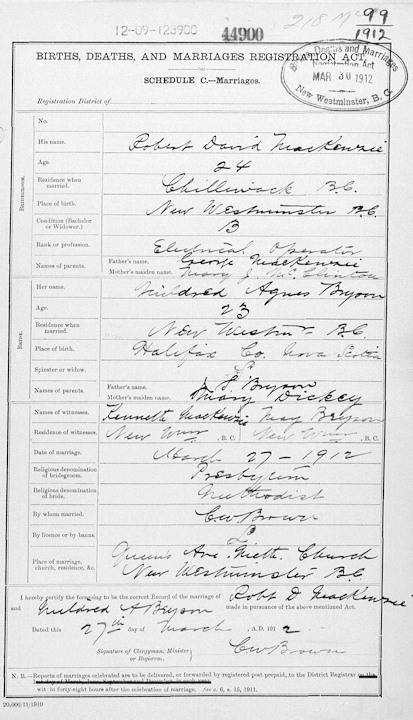 12-09-123900
44900
218 Mc
99
1912
BIRTHS, DEATHS, AND MARRIAGES REGISTRATION ACT.
Births, Deaths and Marriages
Registration Act
MAR 30 1912
New Westminster, B.C.
SCHEDULE C.—Marriages.
Registration District of
BRIDEGROOM.
No.
His name. Robert David MacKenzie
Age. 24
Residence when married. Chilliwack B.C.
Place of birth. New Westminster B.C.
Condition (Bachelor or Widower.) B
Rank or profession. Electrical Operator
Names of parents. Father's name. George MacKenzie
Mother's maiden name. Mary J. McClinton
BRIDE.
Her name. Mildred Agnes Bryson
Age. 23
Residence when married. New Westmr B.C.
Place of birth. Halifax Co. Nova Scotia
Spinster or widow. S
Names of parents. Father's name. Bryson
Mother's maiden name. Mary Dickey
Names of witnesses. Kenneth MacKenzie May Bryson
Residence of witnesses. New Wmr, B.C. New Wmr, B.C.
Date of marriage. March 27 - 1912
Religious denomination of bridegroom. Presbyterian
Religious denomination of bride. Methodist
By whom married. C W Brown
By licence or by banns. L
Place of marriage, church, residence, &c. Queens Ave. Meth. Church
New Westminster B.C.
I hereby certify the foregoing to be the correct Record of the marriage of Robt D MacKenzie
and Mildred A Bryson made in pursuance of the above mentioned Act.
Dated this 27th day of March, A.D. 1912
Signature of Clergyman, Minister or Registrar. C W Brown
N. B.—Reports of marriages celebrated are to be delivered, or forwarded by registered post prepaid, to the District Registrar on the
1st day of March, June, September and December, in each year
wit in forty-eight hours after the celebration of marriage. See c. 6, s. 15, 1911.
20,000/11/1910